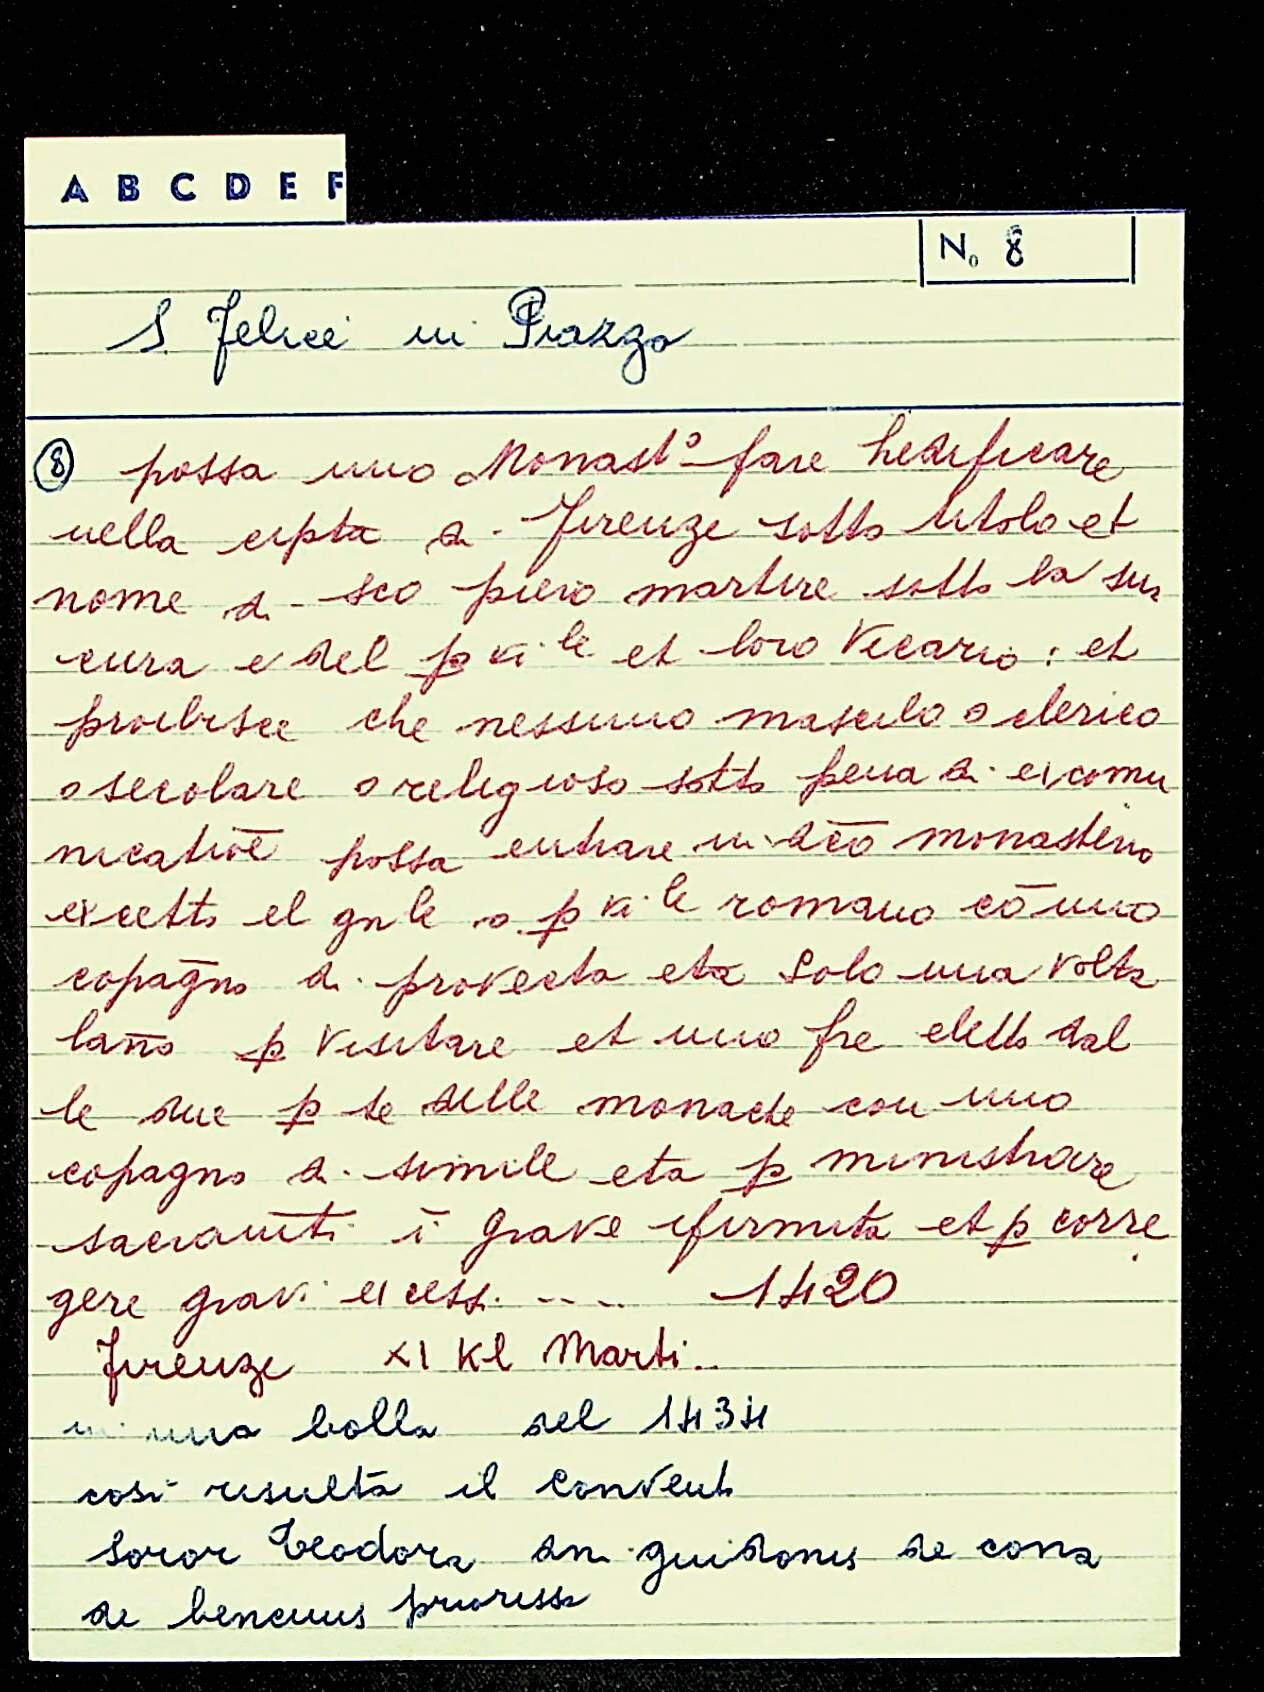 A B C D E F
N. 8
S. Felice in Piazza
8 possa uno Monast° fare hedificare
nella cipta di Firenze sotto titolo et
nome di sco piero martire sotto la sua
cura e del p vi le et loro vicario : et
proibisce che nessuno masculo o clerico
o secolare o religioso sotto pena di excomu
nicatioē possa entrare in dcō monasterio
excetto el gnle o p vi le romano cō uno
copagno di provecta eta solo una volta
lano p visitare et uno fre eletto dal
le due p te delle monache con uno
copagno di simile eta p ministrare
sacramti ī grave ifirmita et p corre
gere gravi excess. --- 1420
Firenze XI Kl Marti..
in una bolla del 1434
così risulta il convento
Soror Teodora dni guidonis de cona
de bencinis prioressa